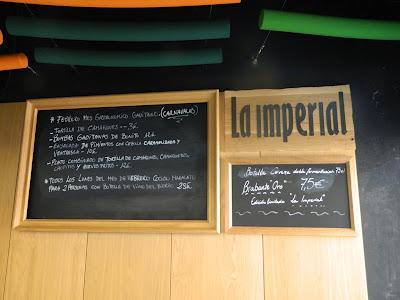 * FEBRERO MES GASTRONOMICO GADITANO (CARNAVALES)
- TORTILLA DE CAMARONES -- 3€.
- BOMBAS GADITANAS DE BONITO 12€
- ENSALADA DE PIMIENTOS CON CEBOLLA CARAMELIZADA Y
VENTRESCA - 12€.
- PLATO COMBINADO DE TORTILLA DE CAMARONES,
CHOPITOS Y HUEVO FRITO - 12€.
* TODOS LOS LUNES DEL MES DE FEBRERO COCIDO
PARA 2 PERSONAS CON BOTELLA DE VINO DEL BIERZO 29€.
La imperial
Botella Cerveza doble fermentación 75cl
Brabante "Oro" 7,5€
Edición limitada "La Imperial"